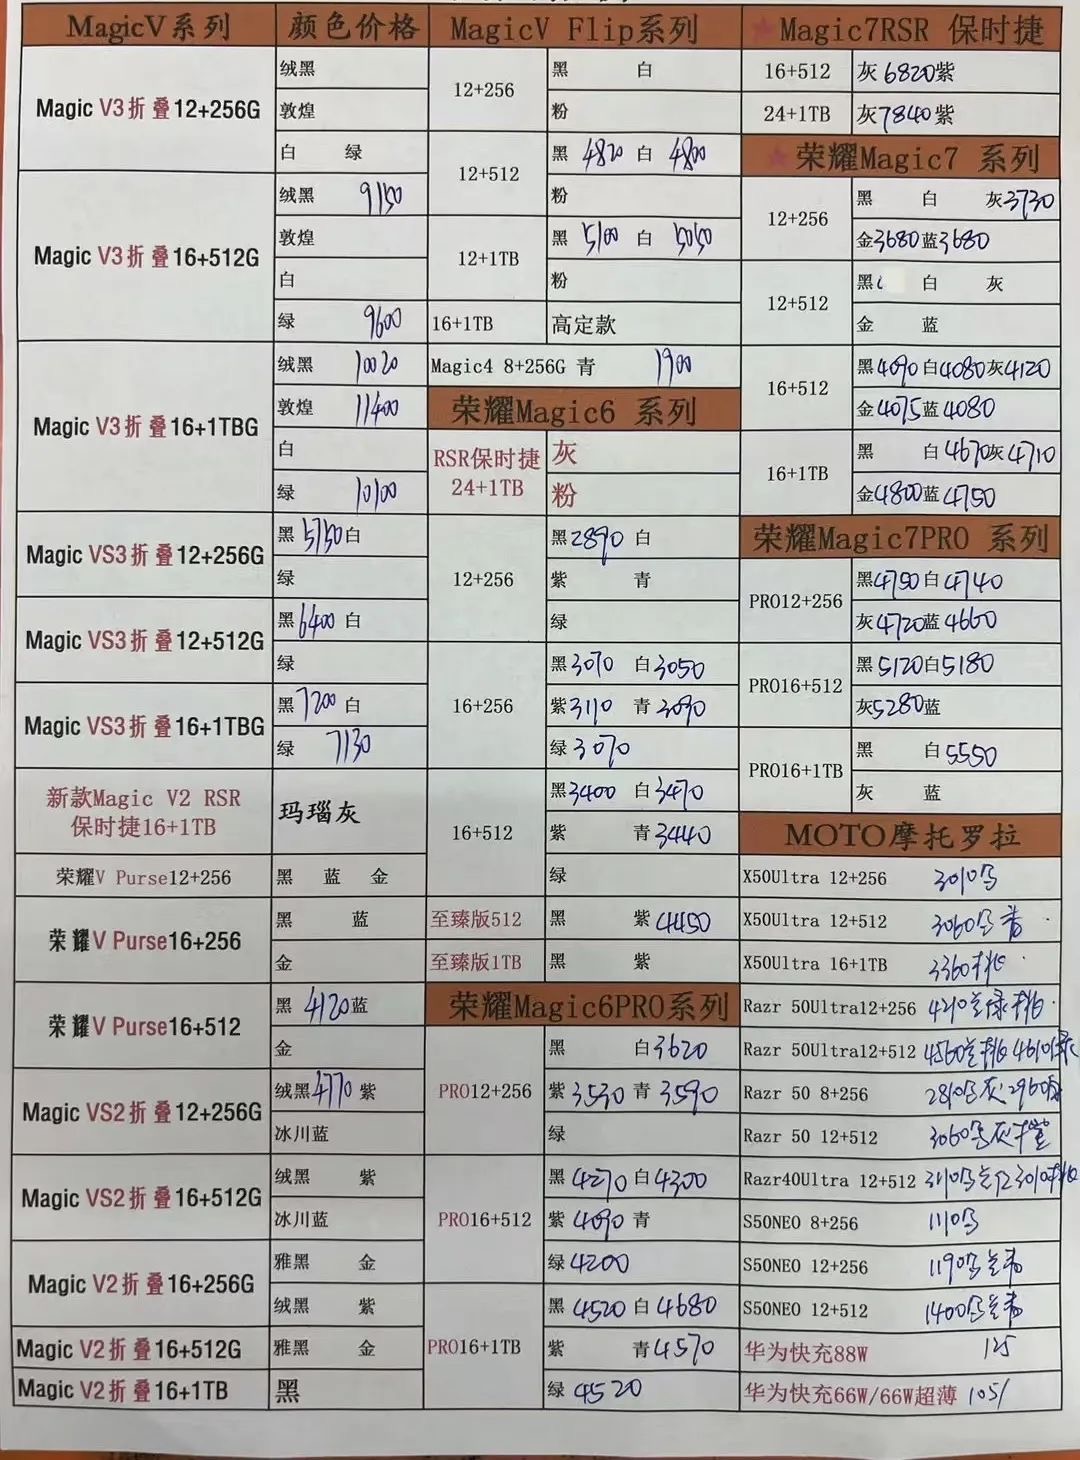 MagicV系列 颜色价格
Magic V3折 叠12+256G
绒黑
敦煌
白 绿
Magic V3折 叠16+512G
绒黑 9150
敦煌
白
绿 9600
Magic V3折 叠16+1TBG
绒黑 10020
敦煌 11400
白
绿 10100
Magic VS3折 叠12+256G
黑 5750 白
绿
Magic VS3折 叠12+512G
黑 6400 白
绿
Magic VS3折 叠16+1TBG
黑 7200 白
绿 7130
新款Magic V2 RSR
保时捷16+1TB
玛瑙灰
荣耀V Purse12+256 黑 蓝 金
荣耀V Purse16+256
黑 蓝
金
荣耀V Purse16+512
黑 4120 蓝
金
Magic VS2折 叠12+256G
绒黑 4770 紫
冰川蓝
Magic VS2折 叠16+512G
绒黑 紫
冰川蓝
Magic V2折 叠16+256G
雅黑 金
绒黑 紫
Magic V2折 叠16+512G 雅黑 金
Magic V2折 叠16+1TB 黑
MagicV Flip系列
12+256
黑 白
粉
12+512
黑 4820 白 4800
粉
12+1TB
黑 5100 白 5050
粉
16+1TB 高定款
Magic4 8+256G 青 1900
荣耀Magic6 系列
RSR保时捷
24+1TB
灰
粉
12+256
黑 2890 白
紫 青
绿
16+256
黑 3070 白 3050
紫 3110 青 3090
绿 3070
16+512
黑 3400 白 3470
紫 青 3440
绿
至臻版512 黑 紫 4450
至臻版1TB 黑 紫
荣耀Magic6PRO系列
PRO12+256
黑 白 3620
紫 3530 青 3590
绿
PRO16+512
黑 4270 白 4300
紫 4090 青
绿 4200
PRO16+1TB
黑 4520 白 4680
紫 青 4570
绿 4520
Magic7RSR 保时捷
16+512 灰 6820 紫
24+1TB 灰 7840 紫
荣耀Magic7 系列
12+256
黑 白 灰 3730
金 3680 蓝 3680
12+512
黑 白 灰
金 蓝
16+512
黑 4090 白 4080 灰 4120
金 4075 蓝 4080
16+1TB
黑 白 4670 灰 4710
金 4800 蓝 4750
荣耀Magic7PRO 系列
PRO12+256
黑 4750 白 4740
灰 4720 蓝 4660
PRO16+512
黑 5120 白 5180
灰 5280 蓝
PRO16+1TB
黑 白 5550
灰 蓝
MOTO摩托罗拉
X50Ultra 12+256 3010
X50Ultra 12+512 3060
X50Ultra 16+1TB 3360桃
Razr 50Ultra12+256 4210兰绿桃
Razr 50Ultra12+512 4560兰桃 4610绿
Razr 50 8+256 2810 灰 2960
Razr 50 12+512 3060 灰
Razr40Ultra 12+512 3110 3010桃
S50NEO 8+256 1110
S50NEO 12+256 1190
S50NEO 12+512 1400
华为快充88W 125
华为快充66W/66W超薄 105/